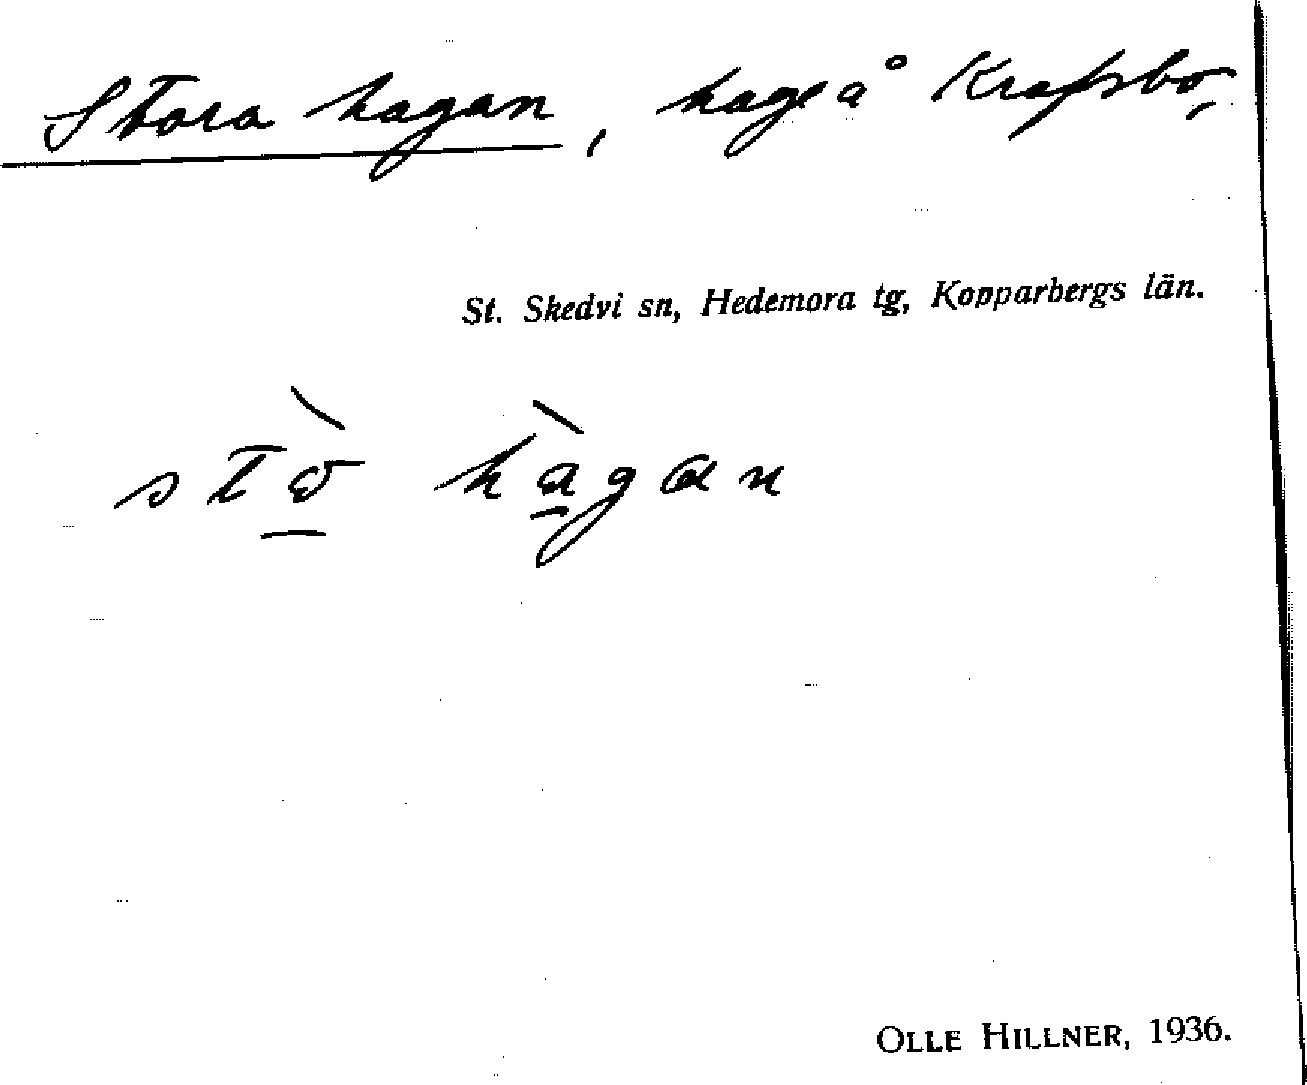 Stora hagan, hage å Krapsbo,
St. Skedvi sn, Hedemora tg, Kopparbergs län.
hagan
OLLE HILLNER, 1936.